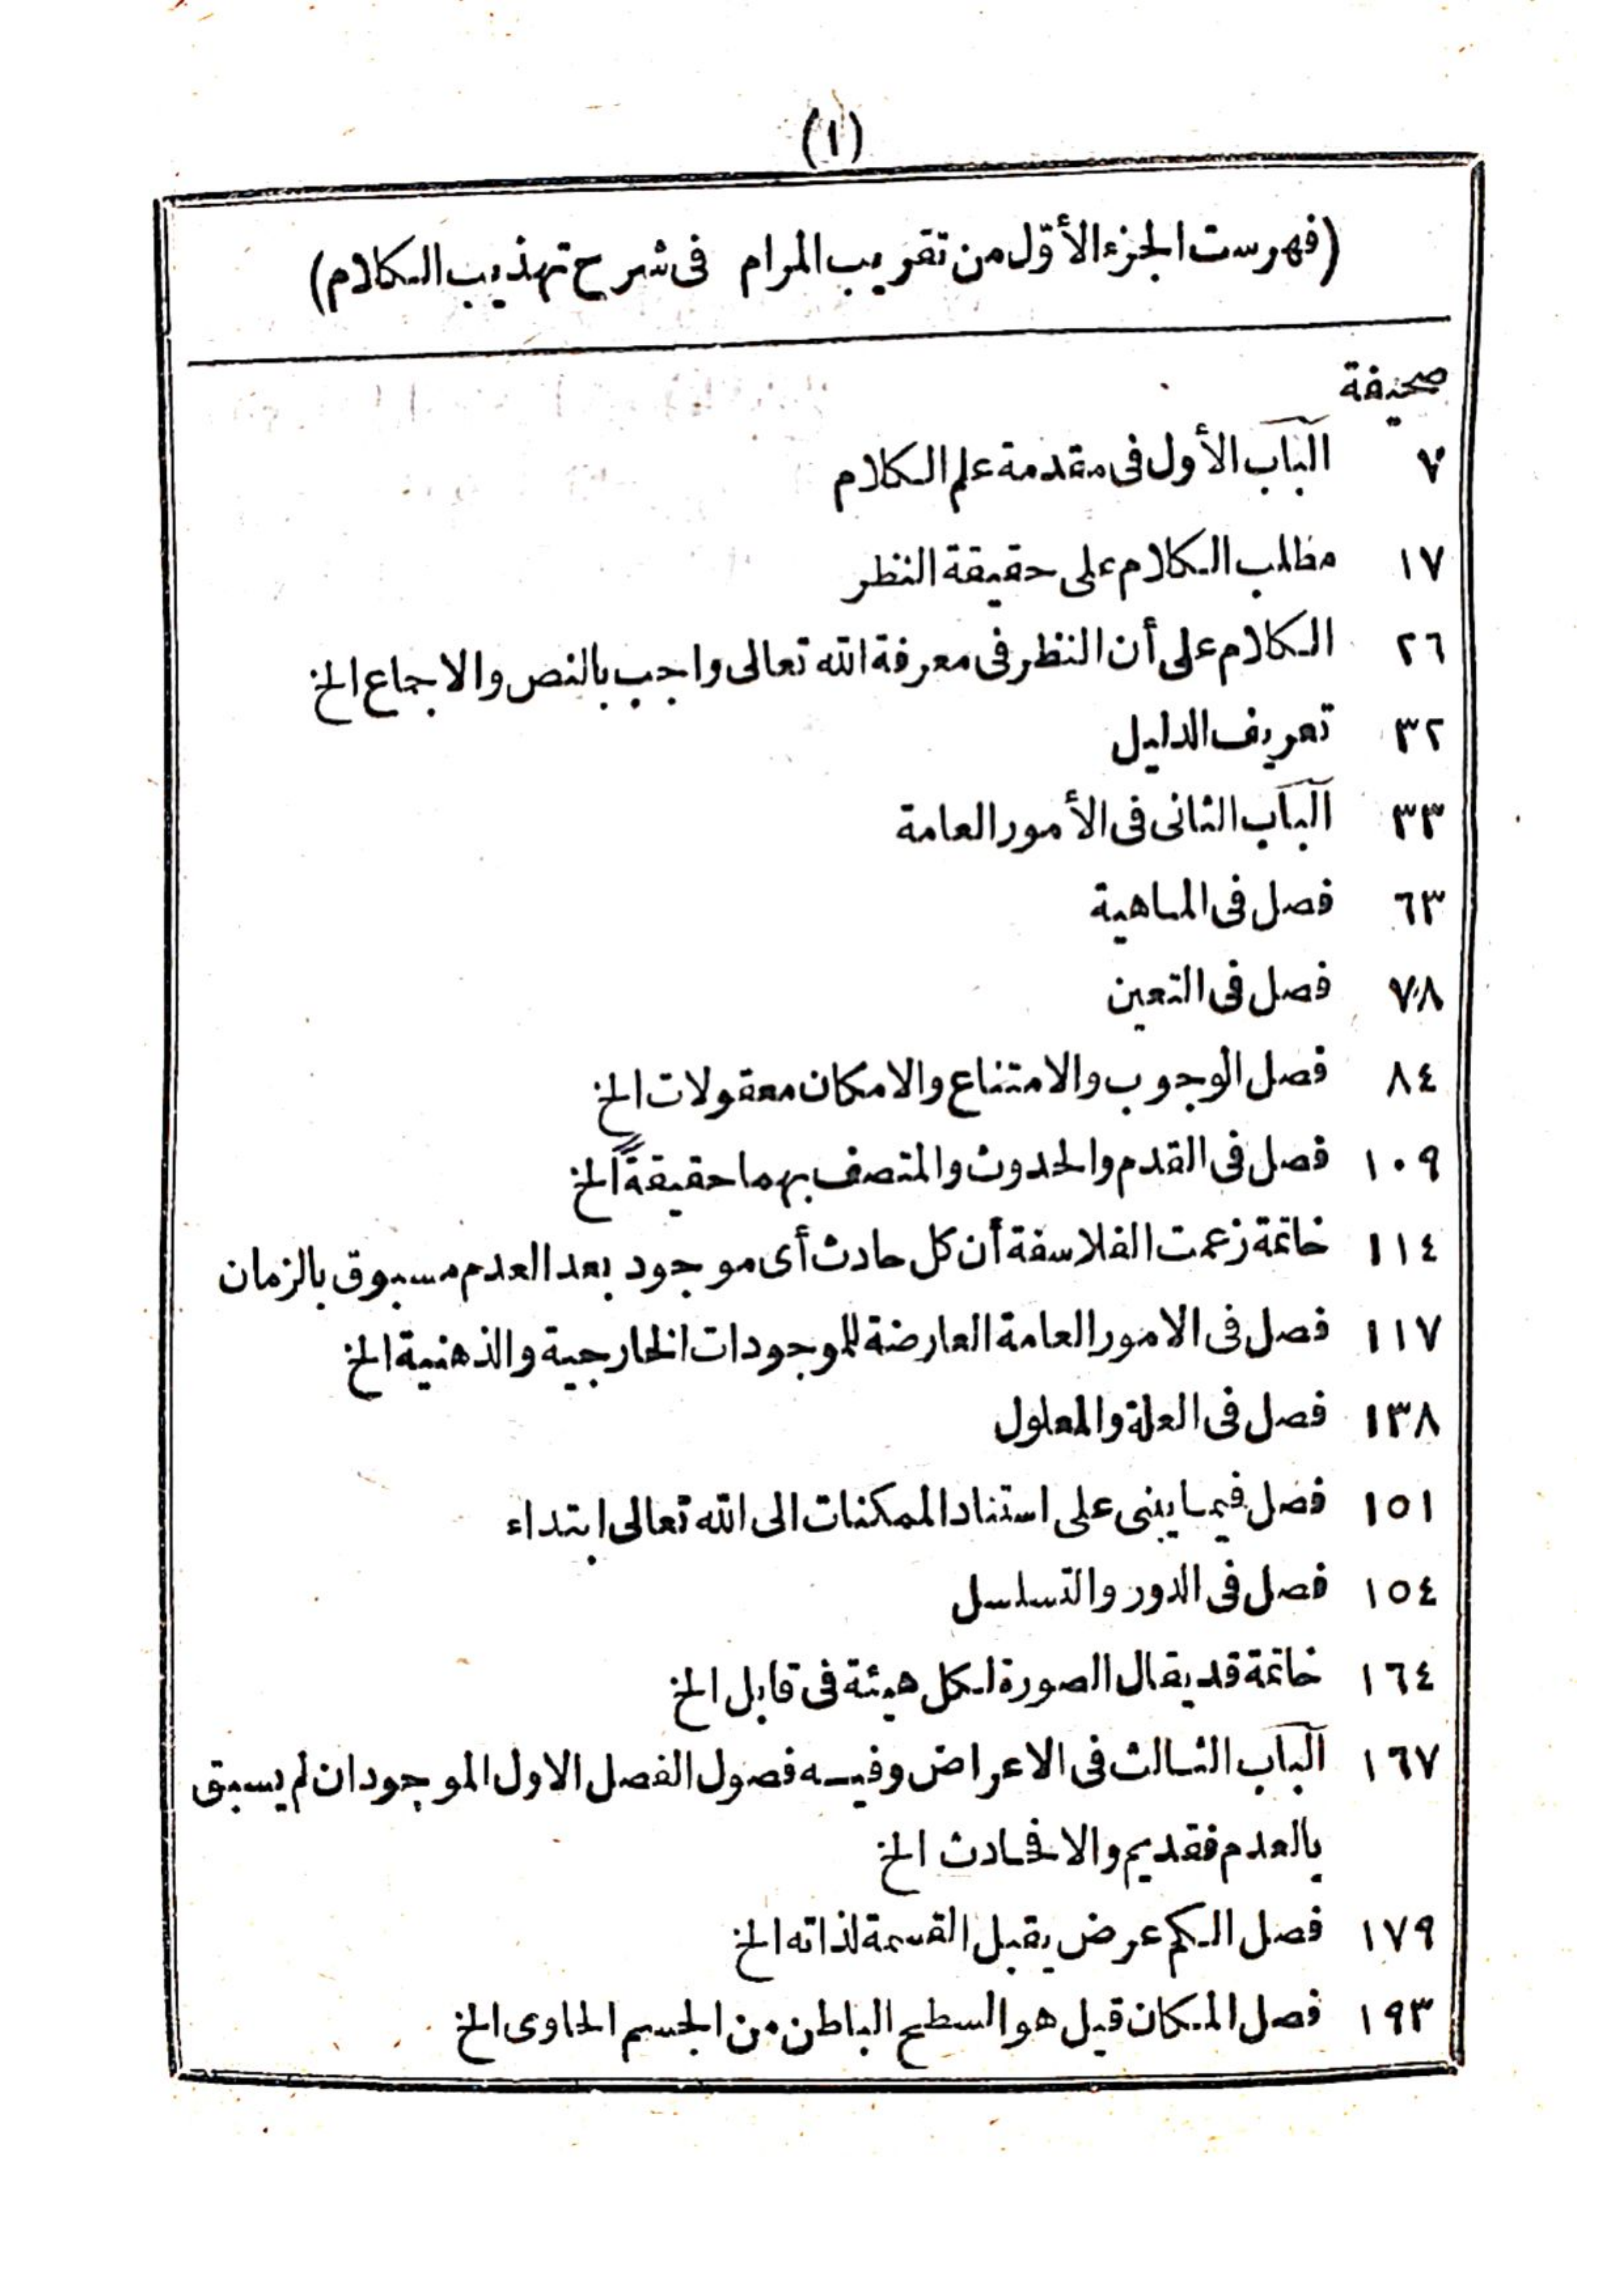 (١)
(فهرست الجزء الأوّل من تقريب المرام فى شرح تهذيب الكلام)
صحيفة
٧ الباب الأول فى مقدمة علم الكلام
١٧ مطلب الكلام على حقيقة النظر
٢٦ الكلام على أن النظر فى معرفة الله تعالى واجب بالنص والاجماع الخ
٣٢ تعريف الدليل
٣٣ الباب الثانى فى الأمور العامة
٦٣ فصل فى الماهية
٧٨ فصل فى التعين
٨٤ فصل الوجوب والامتناع والامكان معقولات الخ
١٠٩ فصل فى القدم والحدوث والمتصف بهما حقيقةً الخ
١١٤ خاتمة زعمت الفلاسفة أن كل حادث أى موجود بعد العدم مسبوق بالزمان
١١٧ فصل فى الامور العامة العارضة للموجودات الخارجية والذهنية الخ
١٣٨ فصل فى العلة والمعلول
١٥١ فصل فيما يبنى على استناد الممكنات الى الله تعالى ابتداء
١٥٤ فصل فى الدور والتسلسل
١٦٤ خاتمة قد يقال الصورة لكل هيئة فى قابل الخ
١٦٧ الباب الثالث فى الاعراض وفيه فصول الفصل الاول الموجود ان لم يسبق
بالعدم فقديم والا فحادث الخ
١٧٩ فصل الكم عرض يقبل القسمة لذاته الخ
١٩٣ فصل المكان قيل هو السطح الباطن من الجسم الحاوى الخ